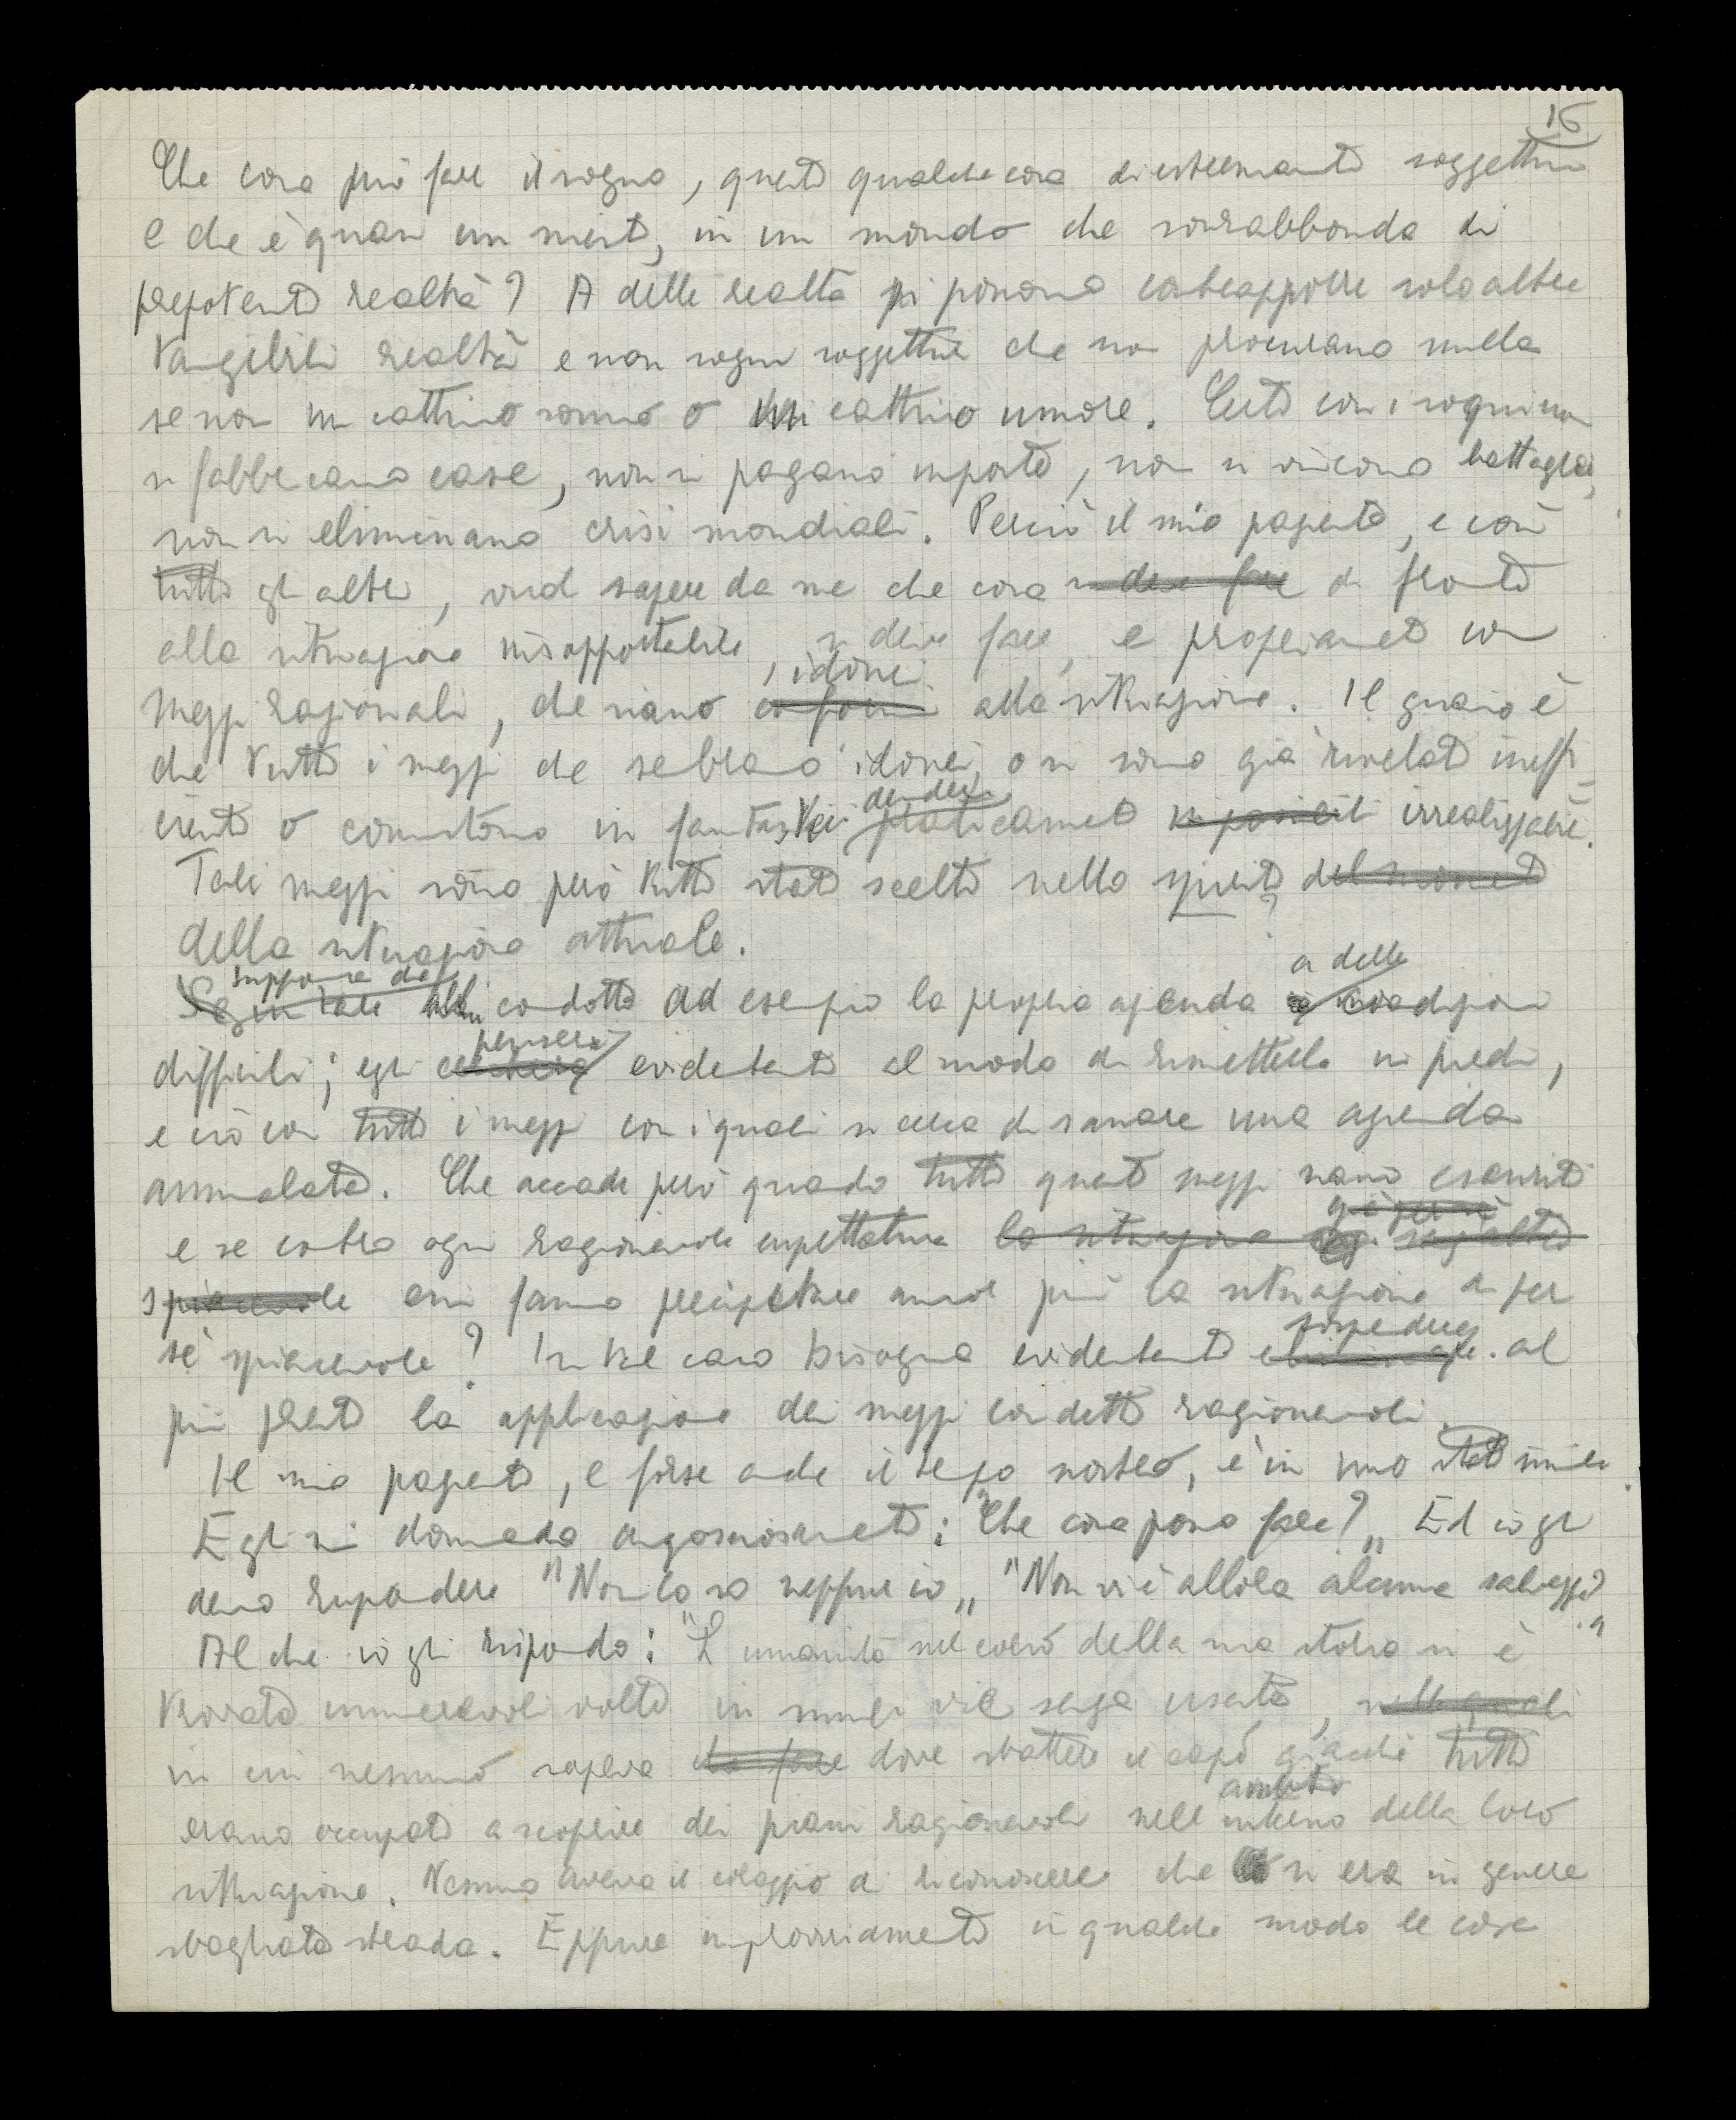 16
Che cosa può fare il sogno, questo qualche cosa di estremamente soggettivo
e che è quasi un niente, in un mondo che sovrabbonda di
prepotenti realtà? A delle realtà si possono contrapporre solo altre
tangibili realtà e non sogni soggettivi che non procurano nulla
se non un cattivo sonno o un cattivo umore. Certo con i sogni non
si fabbricano case, non si pagano imposte, non si vincono battaglie,
non si eliminano crisi mondiali. Perciò il mio paziente, e così
tutti gli altri, vuol sapere da me che cosa si deve fare di fronte
alla situazione insopportabile, si deve fare, e propriamente con
, idonei
mezzi razionali, che siano alla situazione. Il guaio è
che tutti i mezzi che sembrano idonei, o si sono già rivelati ineffi-
cienti o consistono in fantastici praticamente impossibili irrealizzabili.
Tali mezzi sono però tutti stati scelti nello spirito del momento
della situazione attuale.
suppone che a delle
condotto ad esempio la propria azienda condizioni
penserà
difficili; egli evidentemente al modo di rimetterla in piedi,
e ciò con tutti i mezzi con i quali si cerca di sanare una azienda
ammalata. Che accade però quando tutti questi mezzi siano esauriti
e se contro ogni ragionevole aspettativa la situazione
spiacevole essi fanno precipitare ancor più la situazione di per
sospendere
sè spiacevole? In tal caso bisogna evidentemente al
più presto la applicazione dei mezzi cosidetti ragionevoli.
Il mio paziente, e forse anche il tempo nostro, è in uno stato simile.
Egli mi domanda angosciosamente: "Che cosa posso fare?" Ed io gli
devo rispondere "Non lo so neppure io" "Non vi è allora alcuna salvezza?"
Al che io gli rispondo: "L'umanità nel corso della sua storia si è
trovata innumerevoli volte in simili vie senza uscita, nelle quali
in cui nessuno sapeva che fare dove sbattere il capo giacchè tutti
ambito
erano occupati a scoprire dei piani ragionevoli nell'interno della loro
situazione. Nessuno aveva il coraggio di riconoscere che si era in genere
sbagliata strada. Eppure improvvisamente in qualche modo le cose